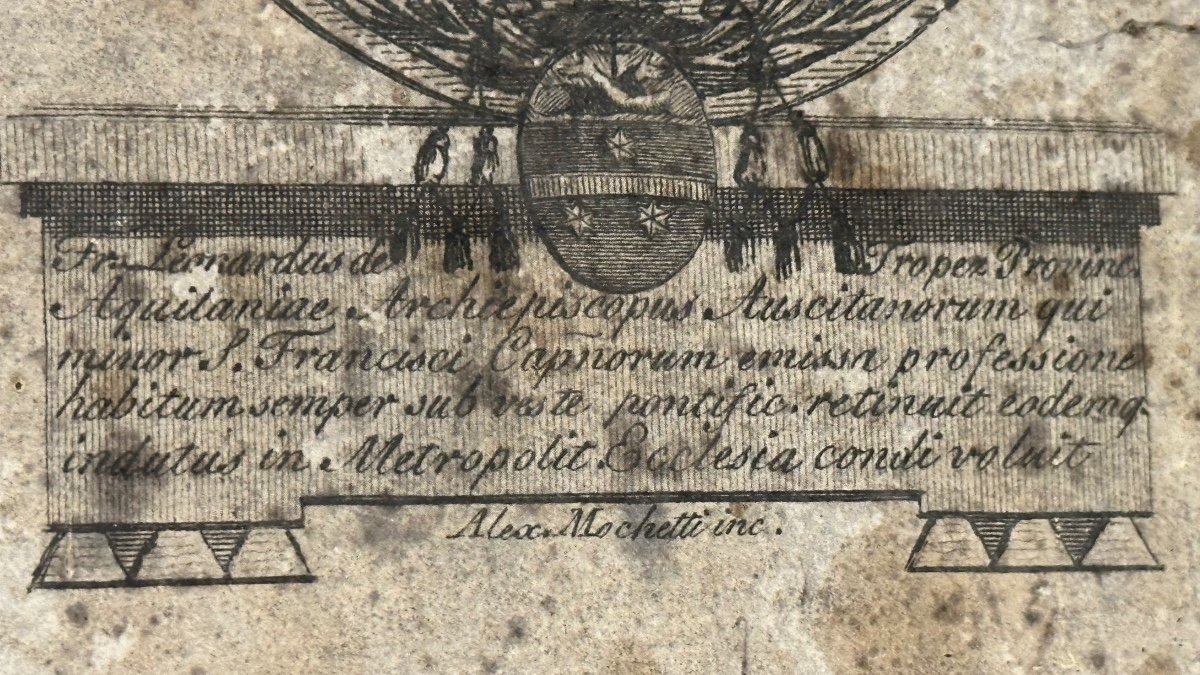 Fr. Leonardus de Tropez Provinc.
Aquitaniae Archiepiscopus Auscitanorum qui
minor S. Francisci Capñorum emissa professione
habitum semper sub veste pontific. retinuit eodemq.
indutus in Metropolit. Ecclesia condi voluit
Alex. Mochetti inc.